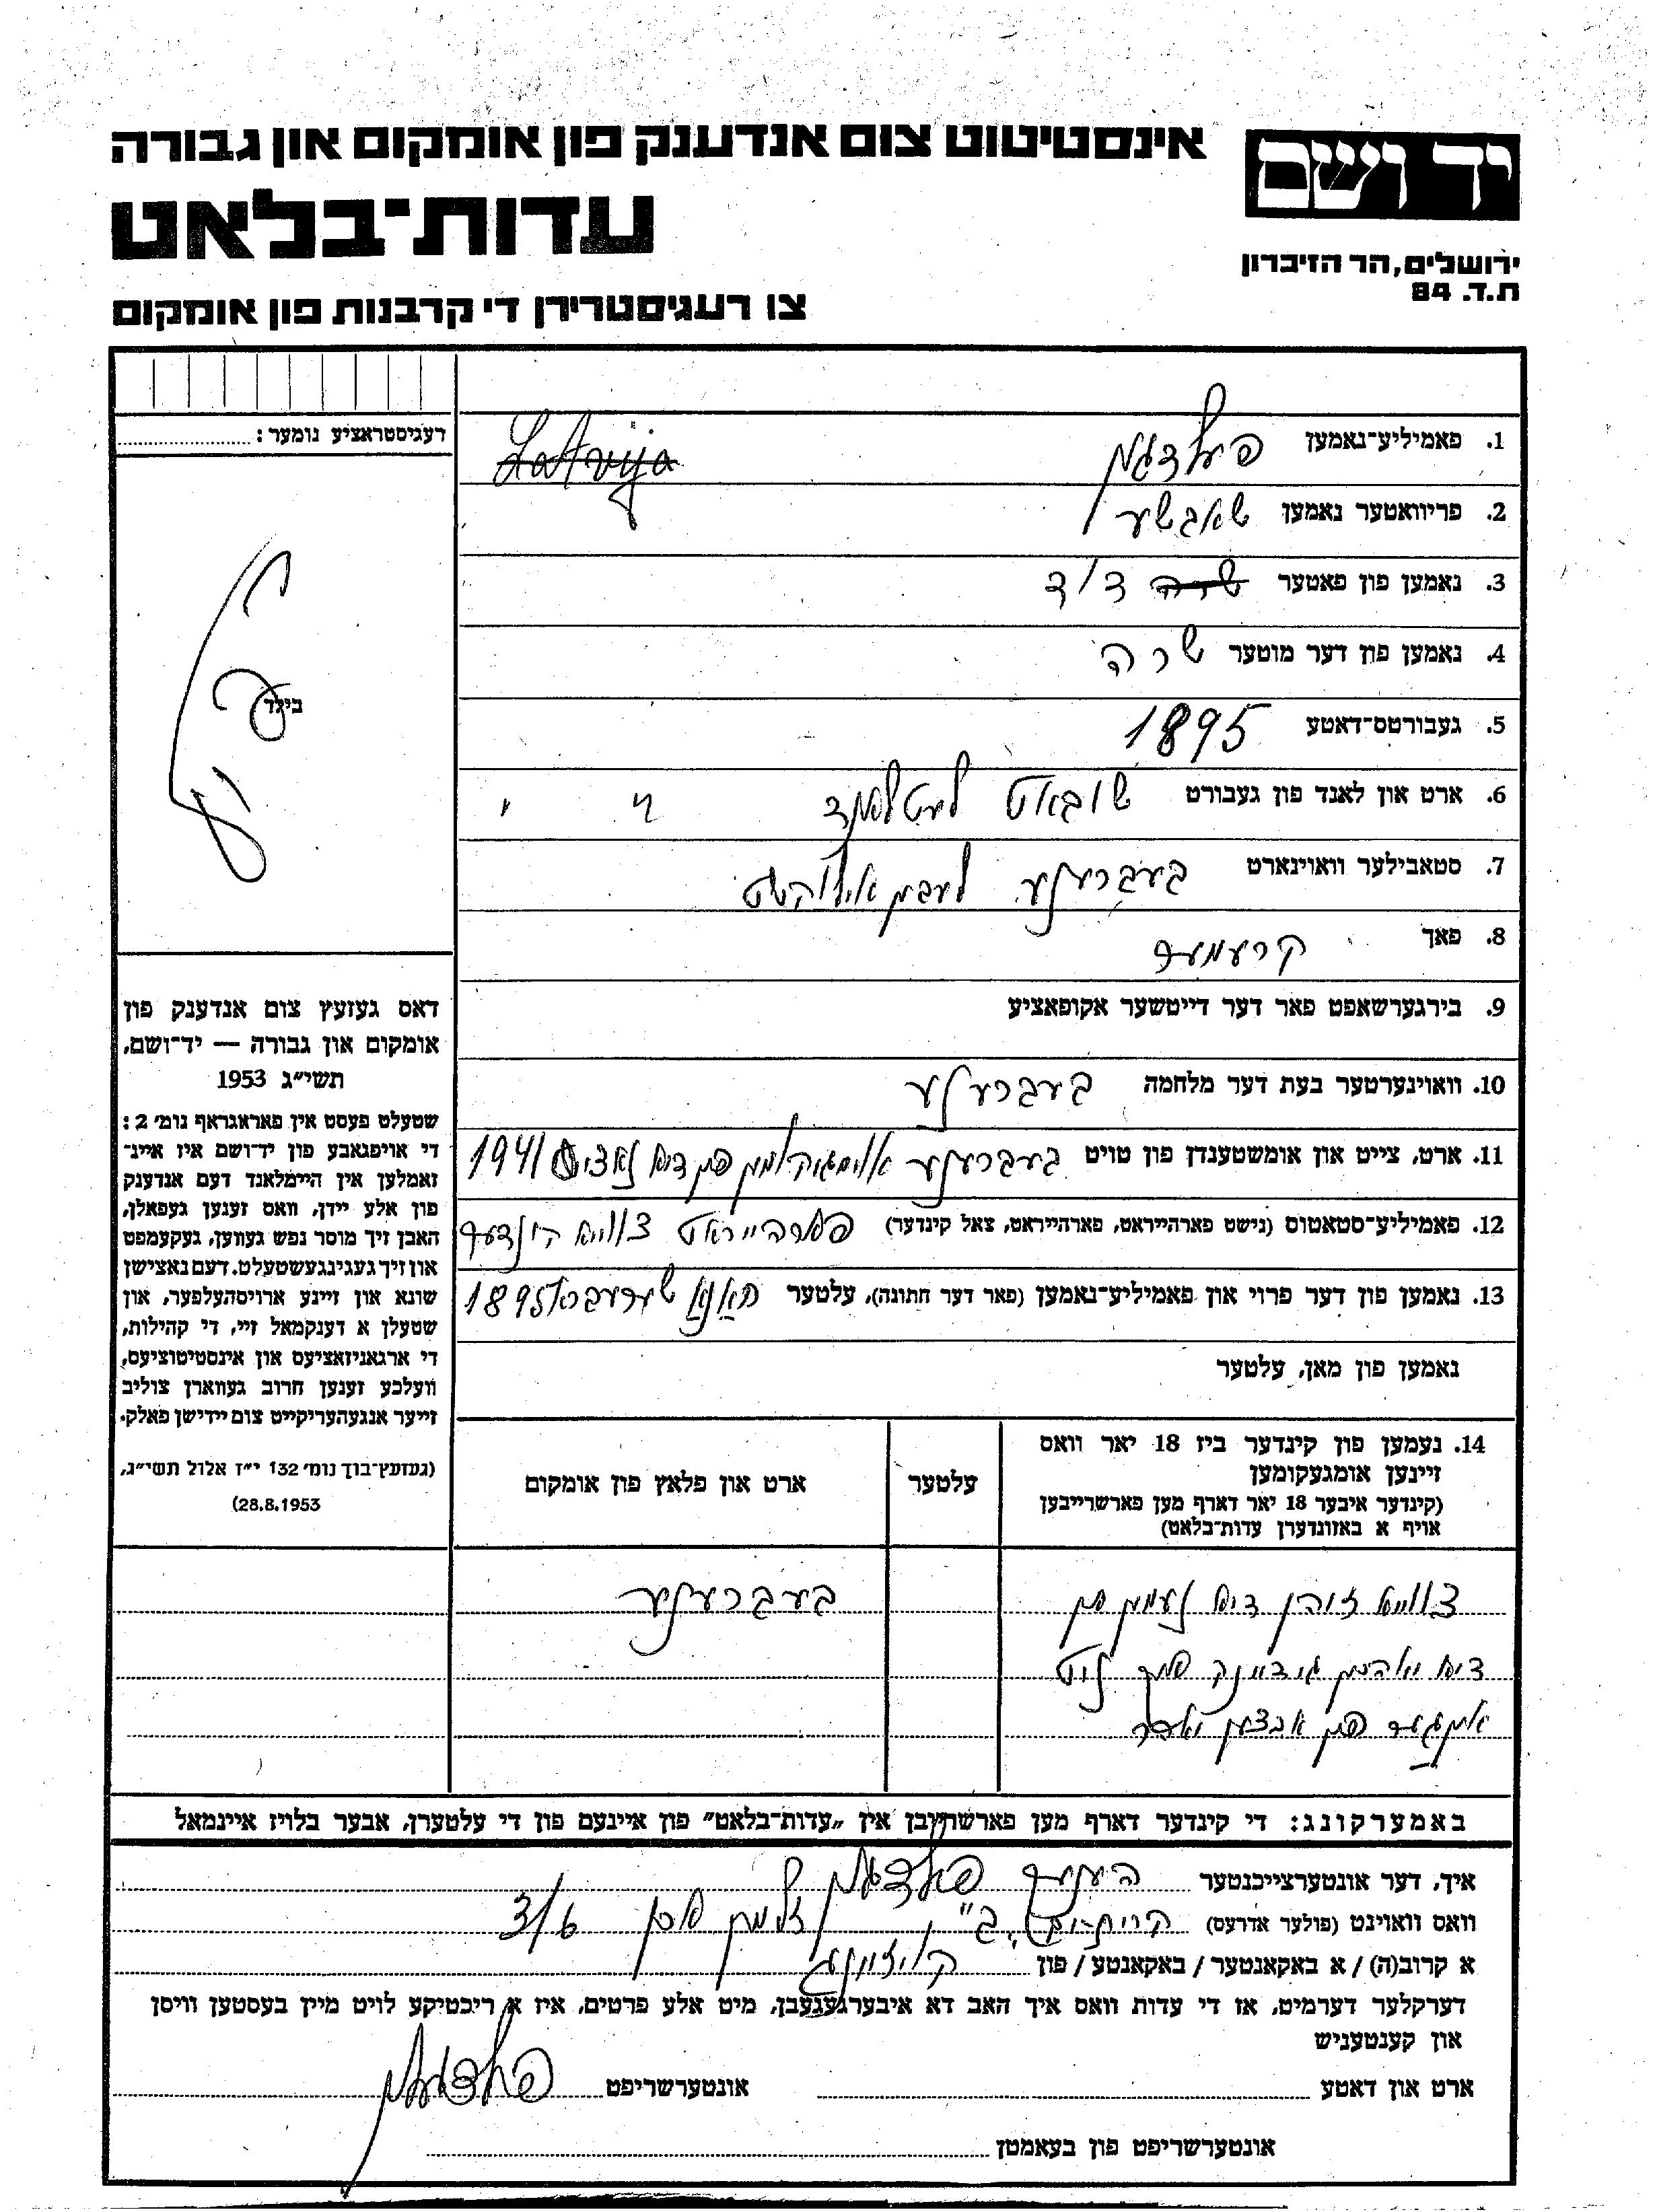 אינסטיטוט צום אנדענק פון אומקום און גבורה
יד ושם
עדות־בלאט
ירושלים, הר הזיכרון
ת.ד. 84
צו רעגיסטרירן די קרבנות פון אומקום
רעגיסטראציע נומער:
Latvija
1. פאמיליע־נאמען פעלדמן
2. פריוואטער נאמען
3. נאמען פון פאטער שרה דוד
4. נאמען פון דער מוטער שרה
5. געבורטס־דאטע 1895
6. ארט און לאנד פון געבורט שובאט לעטלאנד
7. סטאבילער וואוינארט בעברענע לעבן אילוקשט
8. פאך קרעמער
9. בירגערשאפט פאר דער דייטשער אקופאציע
10. וואוינערטער בעת דער מלחמה בעברענע
11. ארט, צייט און אומשטענדן פון טויט בעברענע אומגעקומען פון דיא נאציס 1941
12. פאמיליע־סטאטוס (נישט פארהייראט, פארהייראט, צאל קינדער) פארהייראט צווייא קינדער
13. נאמען פון דער פרוי און פאמיליע־נאמען (פאר דער חתונה), עלטער 1895
נאמען פון מאן, עלטער
בילד
דאס געזעץ צום אנדענק פון
אומקום און גבורה — יד־ושם,
תשי״ג 1953
שטעלט פעסט אין פאראגראף נומ׳ 2:
די אויפגאבע פון יד־ושם איז איינ־
זאמלען אין היימלאנד דעם אנדענק
פון אלע יידן, וואס זענען געפאלן,
האבן זיך מוסר נפש געווען, געקעמפט
און זיך געגינגעשטעלט דעם נאצישן
שונא און זיינע ארויסהעלפער, און
שטעלן א דענקמאל זיי, די קהילות,
די ארגאניזאציעס און אינסטיטוציעס,
וועלכע זענען חרוב געווארן צוליב
זייער אנגעהעריקייט צום יידישן פאלק.
(געזעץ־בוך נומ׳ 132 י״ז אלול תשי״ג,
28.8.1953)
14. נעמען פון קינדער ביז 18 יאר וואס
זיינען אומגעקומען
(קינדער איבער 18 יאר דארף מען פארשרייבן
אויף א באזונדערן עדות־בלאט)
עלטער
ארט און פלאץ פון אומקום
צווייא זוהן דיא נעמען פון בעברענע
דיא
פון
באמערקונג: די קינדער דארף מען פארשרייבן אין „עדות־בלאט״ פון איינעם פון די עלטערן, אבער בלויז איינמאל
איך, דער אונטערצייכנטער הענעך פעלדמאן
וואס וואוינט (פולער אדרעס) קרית־ים ב״ זלמן 3/6
א קרוב(ה) / א באקאנטער / באקאנטע / פון קוזינע
דערקלער דערמיט, אז די עדות וואס איך האב דא איבערגעגעבן, מיט אלע פרטים, איז א ריכטיקע לויט מיין בעסטען וויסן
און קענטעניש
ארט און דאטע אונטערשריפט פעלדמאן
אונטערשריפט פון בעאמטן